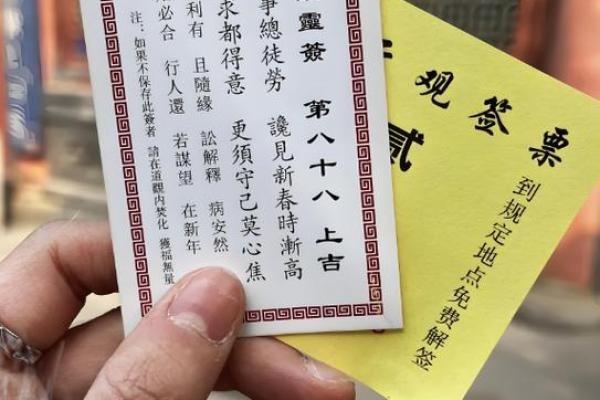 观签票
贰
到规定地点免费解签
靈簽 第八十八 上吉
事總徒勞 讒見新春時漸高
求都得意 更須守己莫心焦
利有 且隨緣 訟解釋 病安然
必合 行人還 若謀望 在新年
注：如果不保存此簽者 請在道觀内焚化 獲福無量